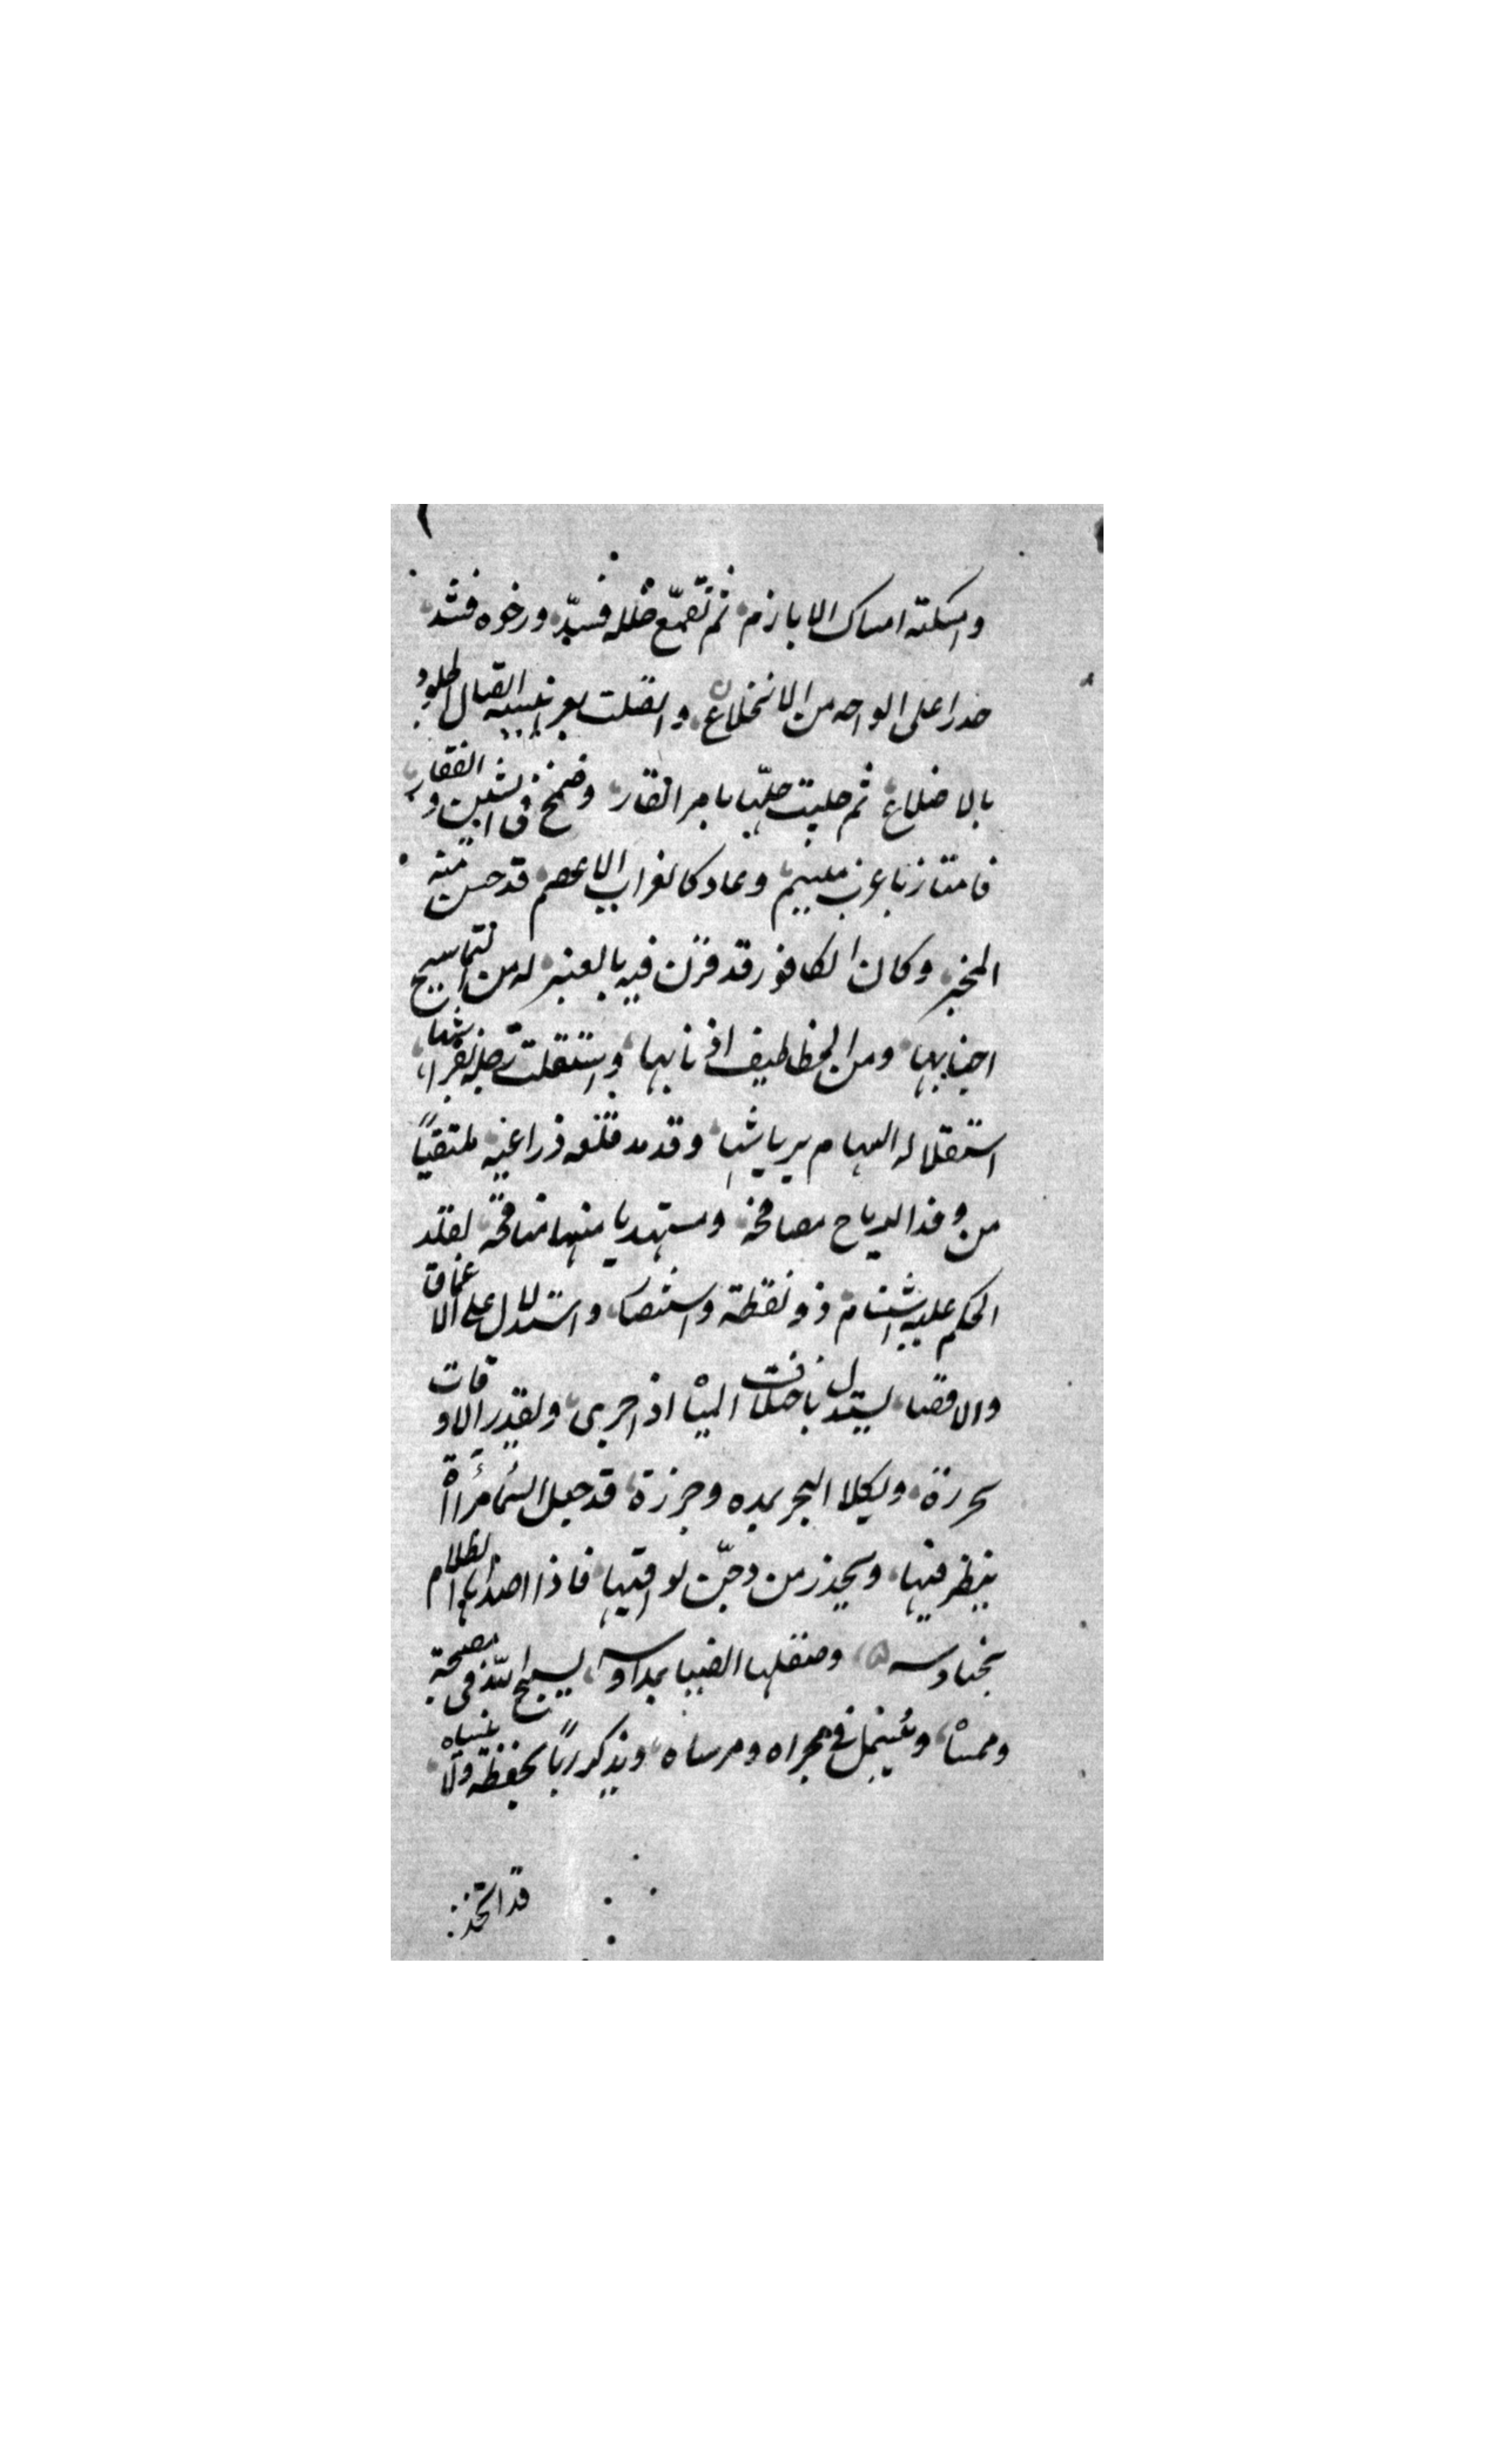 وامسكته امساك الابازم ثم تقمع خلله فسدّ ورخوه فشد
حدرا على الواحه من الانخلاع واتصلت بعرنينه اتصال الجلود
بالاضلاع ثم حليت جلبابا من القار وضمخ في اللبن والفقار
فامتاز باغرب ميسم وعاد كالغراب الاعصم قد حسن منه
المخبر وكان الكافور قد قرن فيه بالعنبر له من التماسيح
اجنابها ومن الخطاطيف اذنابها واستقلت رجله بفراشها
استقلاله السهام برياشها وقد مد قلعه ذراعيه ملتقيًا
من وفد الرياح مصافحة ومستهديا منها منافحة لقلد
الحكم عليه اشتام ذو نقطة واستبصار واستدلال على الاعماق
والاقصا يستدل باختلافات المياه اذا جرى ولقدر الاوقات
بحرزة ويكلا البحر بمده وجزرة قد جعل السماء مرأاة
ينظر فيها ويحذر من دجن لو اقيها فاذا اصداها الظلام
بحنادسه وصقلها الضيا بمداوسه يسبح الله في مصبحه
وممساه ويبسمل في مجراه ومرساه ويذكر ربًا يحفظه ولا ينساه
قد اتخذ